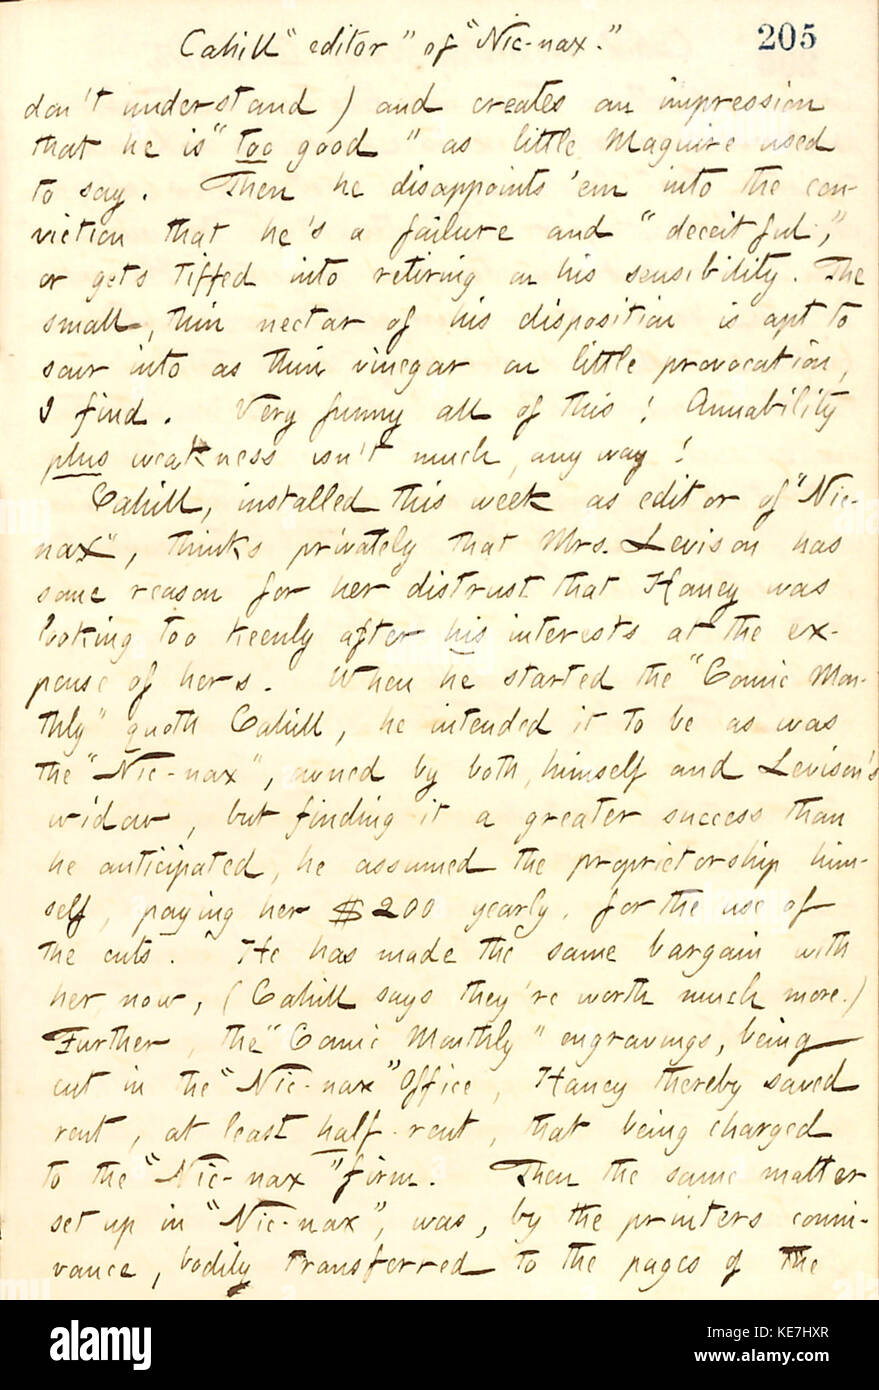 Cahill "editor" of "Nic-nax."
205
don't understand) and creates an impression
that he is "too good" as little Maguire used
to say. Then he disappoints 'em into the con-
viction that he's a failure and "deceitful,"
or gets tiffed into retiring on his sensibility. The
small, thin nectar of his disposition is apt to
sour into as thin vinegar on little provocation,
I find. Very funny all of this! Amiability
plus weakness isn't much, any way!
Cahill, installed this week as editor of "Nic-
nax", thinks privately that Mrs. Levison has
some reason for her distrust that Haney was
looking too keenly after his interests at the ex-
pense of hers. When he started the "Comic Mon-
thly" quoth Cahill, he intended it to be as was
the "Nic-nax", owned by both, himself and Levison's
widow, but finding it a greater success than
he anticipated, he assumed the proprietorship him-
self, paying her $200 yearly, for the use of
the cuts. He has made the same bargain with
her now, (Cahill says they're worth much more.)
Further, the "Comic Monthly" engravings, being
cut in the "Nic-nax" Office, Haney thereby saved
rent, at least half-rent, that being charged
to the "Nic-nax" firm. Then the same matter
set up in "Nic-nax", was, by the printers conni-
vance, bodily transferred to the pages of the
alamy
Image ID: KE7HXR
www.alamy.com